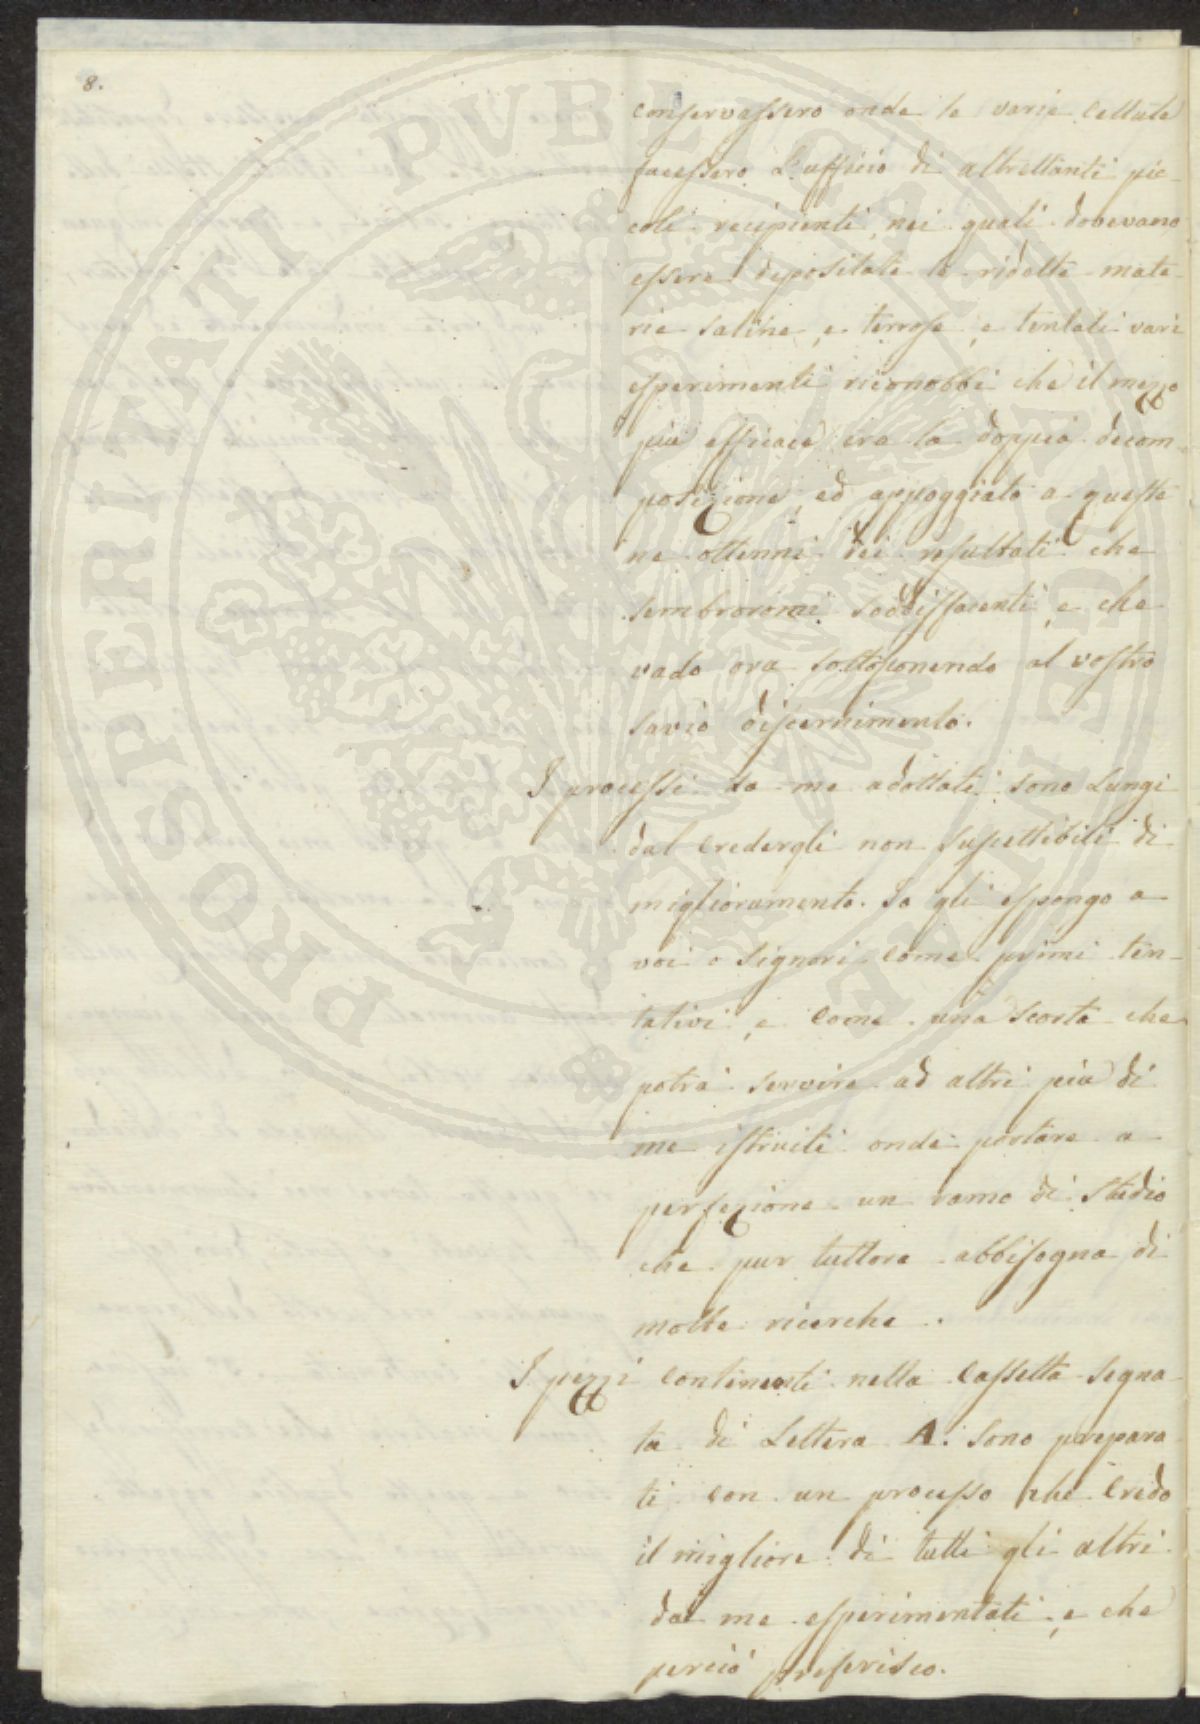 8.
conservassero onde le varie cellule
facessero l'ufficio di altrettanti pic-
coli recipienti, nei quali dovevano
essere depositate le ridette mate-
rie saline, e terrose, e tentati vari
esperimenti riconobbi che il mezzo
più efficace era la doppia decom-
posizione, ed appoggiato a queste
ne ottenni dei resultati che
sembroromi soddisfacenti, e che
vado ora sottoponendo al vostro
savio discernimento.
I processi da me adottati sono lungi
dal credergli non suscettibili di
miglioramento. Io gli espongo a
voi o Signori come primi ten-
tativi, e come una scorta che
potrà servire ad altri più di
me istruiti onde portare a
perfezione un ramo di studio
che pur tuttora abbisogna di
molte ricerche.
I pezzi continenti nella Cassetta segna-
ta di Lettera A. sono prepara-
ti con un processo che credo
il migliore di tutti gli altri
da me esperimentati, e che
perciò preferisco.
PROSPERITATI PVBLICAE AVGENDAE